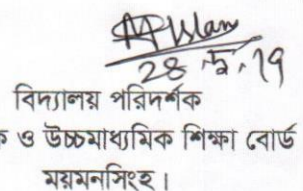 28.5.19
বিদ্যালয় পরিদর্শক
ক ও উচ্চমাধ্যমিক শিক্ষা বোর্ড
ময়মনসিংহ।